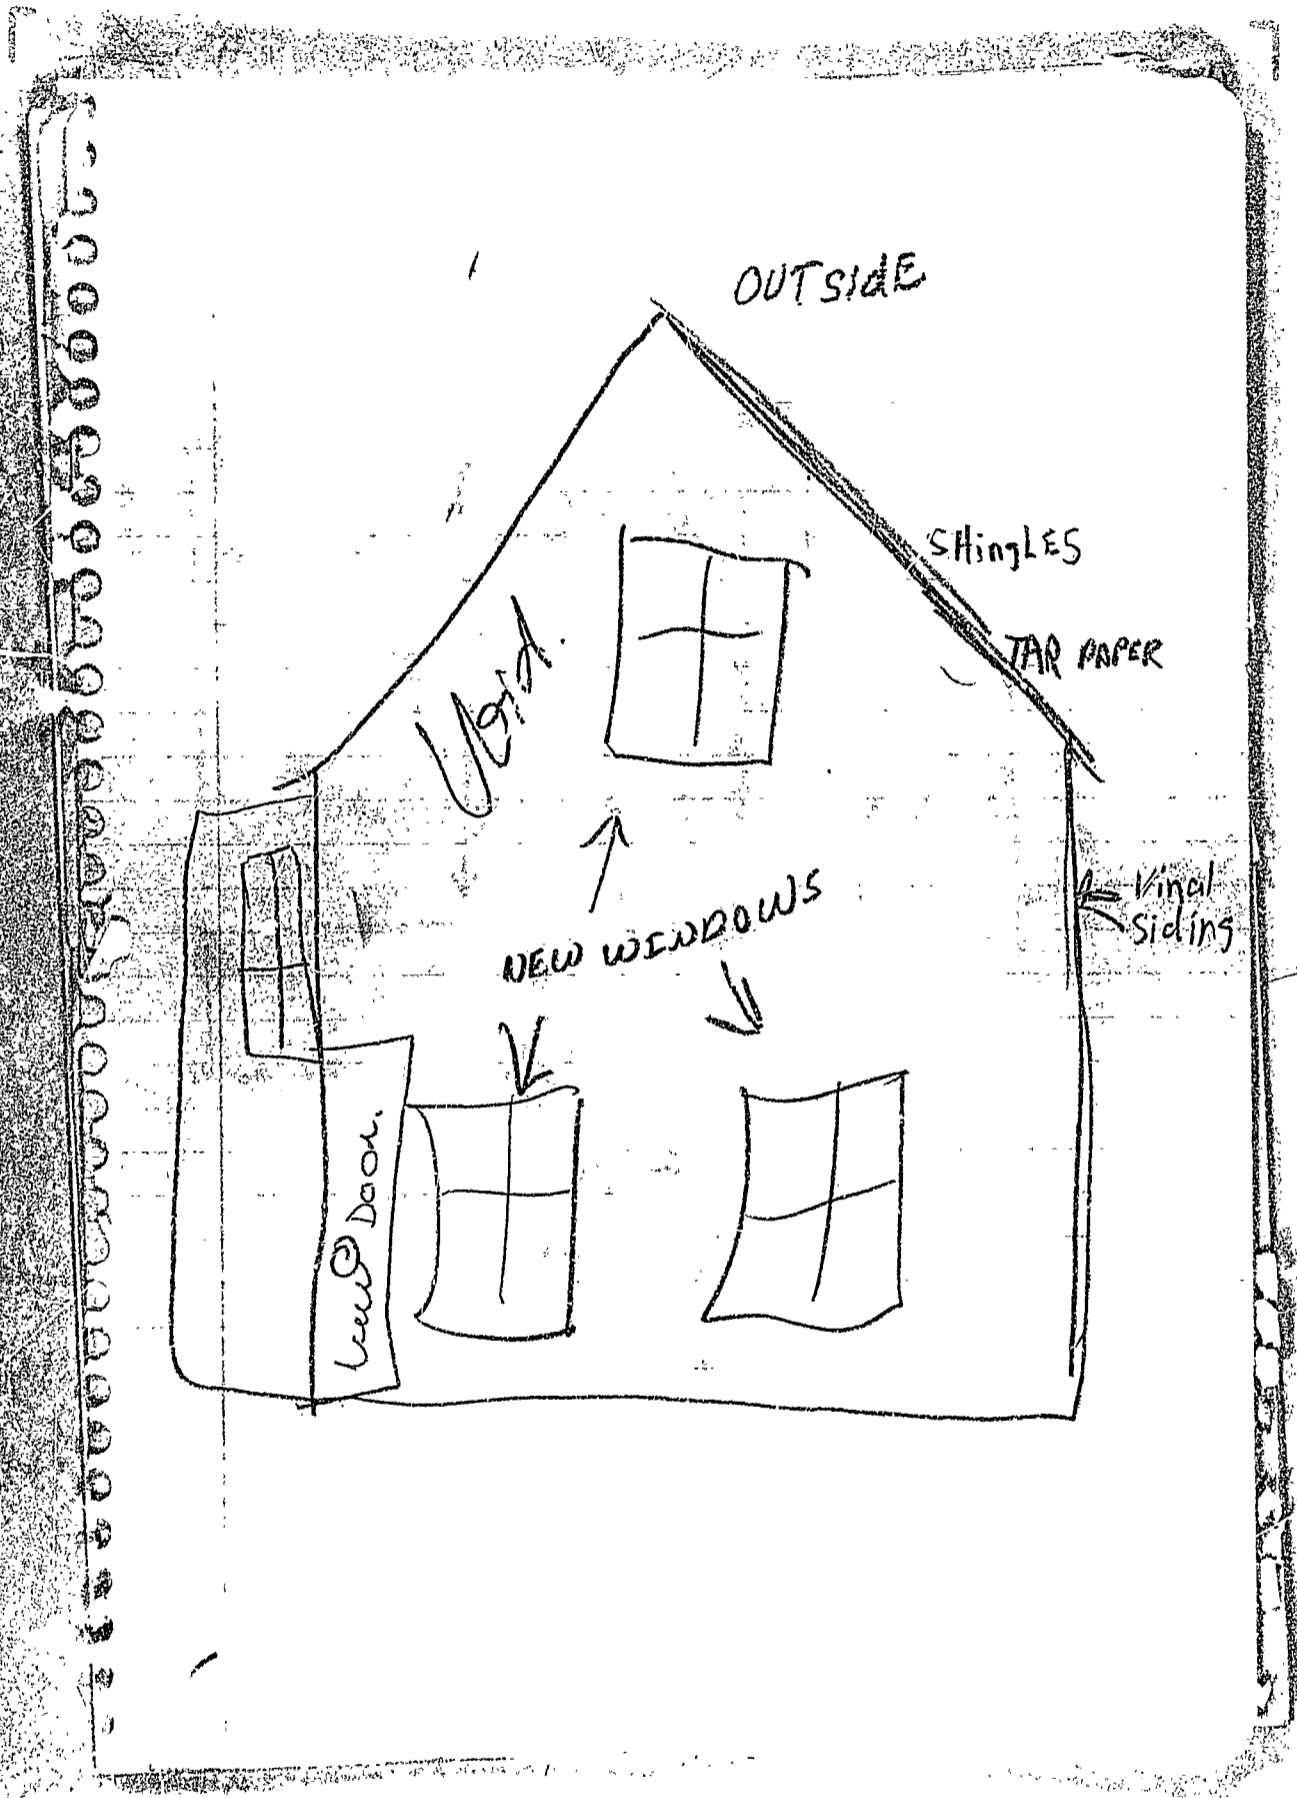 OUTsidE
SHingLES
TAR PAPER
Vinal
siding
NEW WINDOWS
New Door.